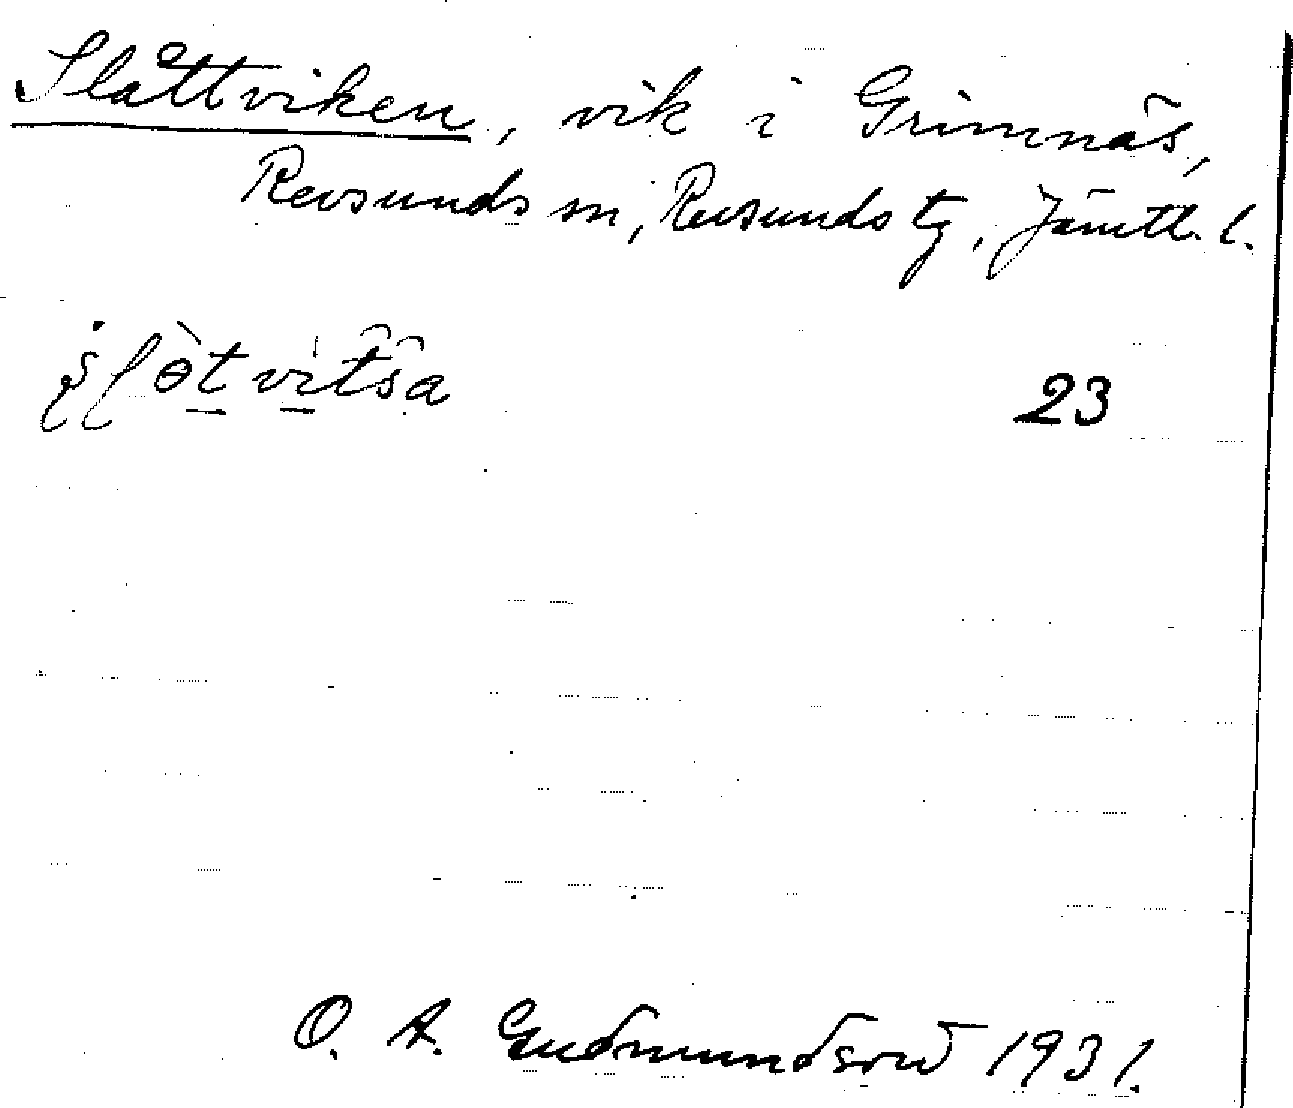 Slåttviken, vik i Grimnäs,
Revsunds sn, Revsunds tg, Jämtl. l.
23
O. A. Gudmundsson 1931.